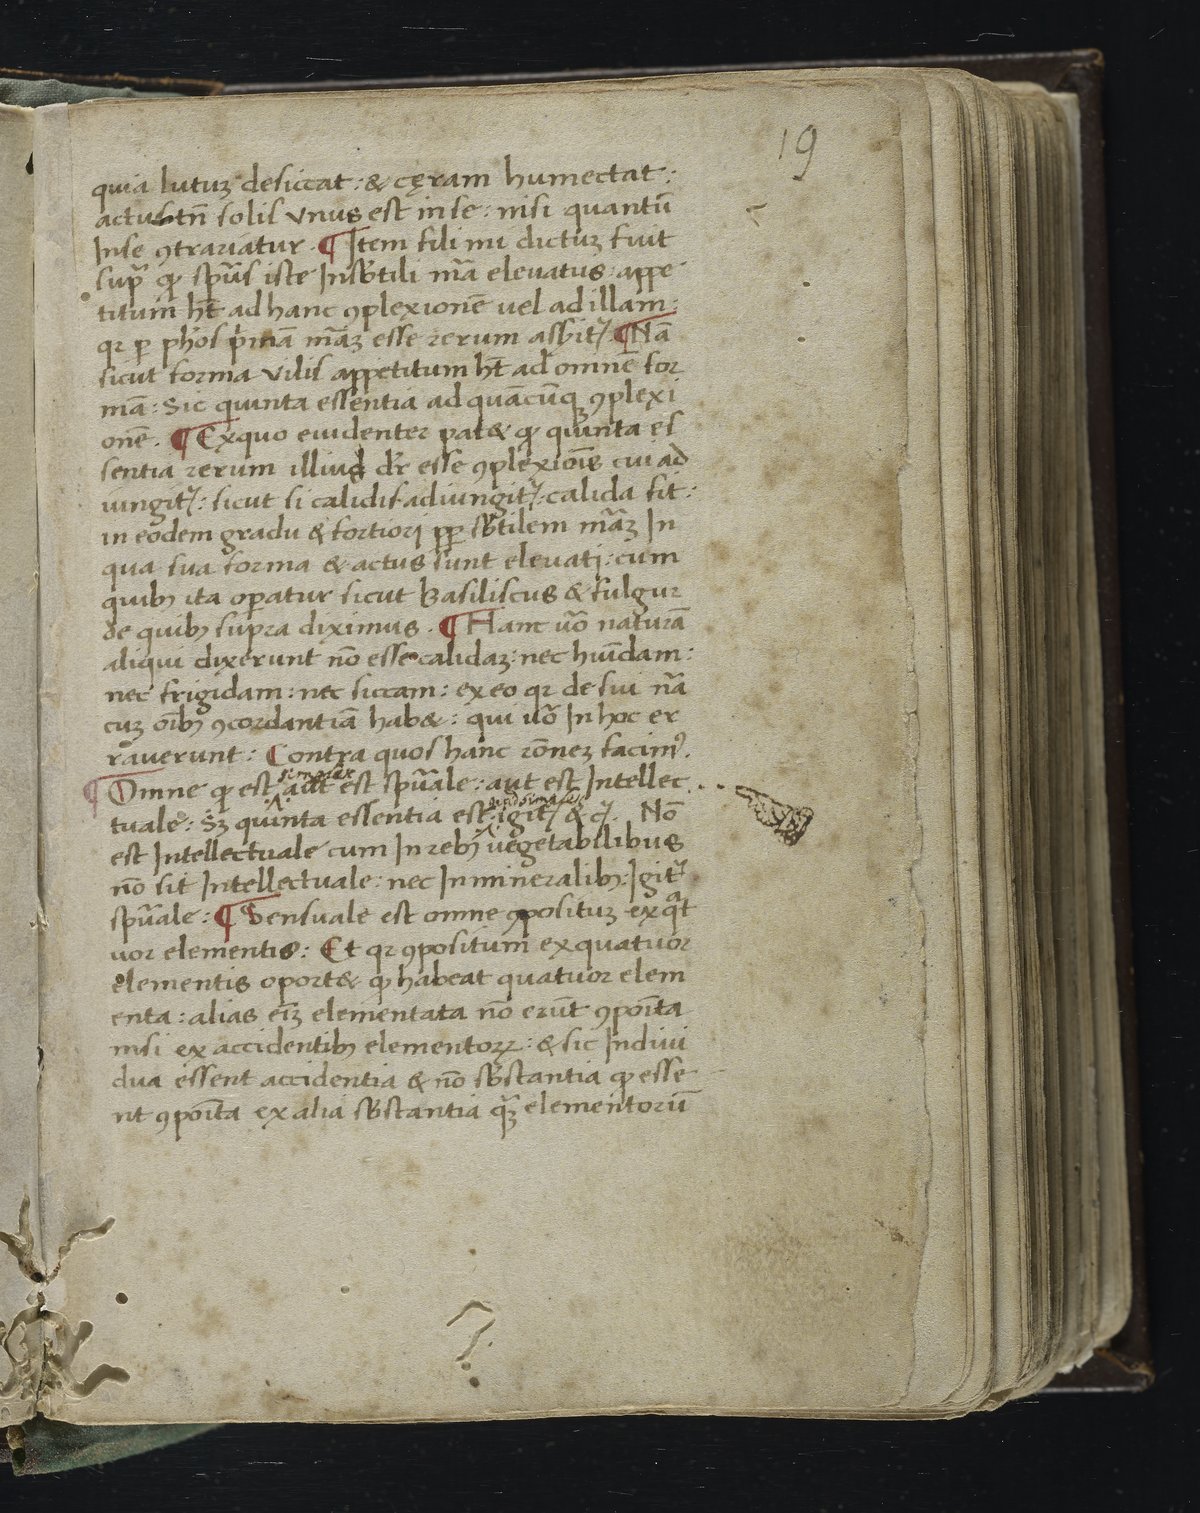 19
quia lutuꝫ desiccat : & cęram humectat :
actus tn̄ solis vnus est in se : nisi quantū
In se ꝯtrariatur . ¶ Item fili mi dictuꝫ fuit
supͣ ꝙ spūs iste In sb̄tili mā elevatus appe
titum ht̄ ad hanc ꝯplexionē uel ad illam :
qꝛ p phōs pͥmā māꝫ esse rerum . ¶ Nā
sicut forma vilis appetitum ht̄ ad omnē for
mā : Sic quinta essentia ad quācūqꝫ ꝯplexi
onē . ¶ Ex quo euidenter pat& ꝙ quinta es
sentia rerum illius dr̄ esse ꝯplexiōis cui ad
iungitᷣ : sicut si calidis adiungitᷣ : calida fit :
in eodem gradu & fortiori ꝓp sb̄tilem māꝫ In
qua sua forma & actus sunt elevati : cum
quibꝫ ita opatur sicut Basiliscus & fulgur
de quibꝫ supra diximus . ¶ Hanc uͦo naturā
aliqui dixerunt nō esse calidaꝫ : nec hūidam :
nec frigidam : nec siccam : ex eo qꝛ de sui nā
cuꝫ oībꝫ ꝯcordantiā hab& : qui uͦo In hoc er
rauerunt : Contra quos hanc rōneꝫ facimꝰ .
simplex
¶ Omne ꝙ est aut est spūale : aut est Intellec
tuale : Sꝫ quinta essentia est : igitᷣ & cᷣ . Nō
est Intellectuale cum In rebꝫ vegetabilibus
nō sit Intellectuale : nec In mineralibꝫ : Igitᷣ
spūale : ¶ Sensuale est omne ꝯpositum ex qͣt
uor elementis : Et qꝛ ꝯpositum ex quatuor
elementis oport& ꝙ habeat quatuor elem
enta : alias eīꝫ elementata nō erūt ꝯpoīta
nisi ex accidentibꝫ elementoꝝ : & sic Indiui
dua essent accidentia & nō sb̄stantia ꝙ esse
nt ꝯpoīta ex alia sb̄stantia qͣꝫ elementorū